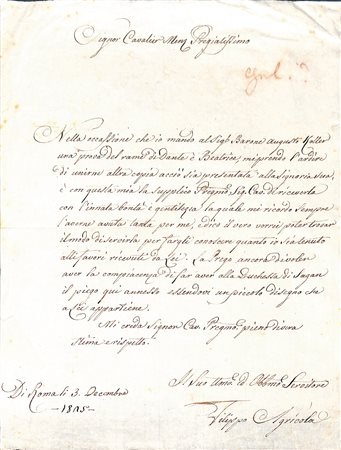 Signor Cavalier Mio Pregiatissimo
Nella occasione che io mando al Sigr Barone Augusti Koller
una prova del rame di Dante è Beatrice, mi prendo l'ardire
di unirne altra copia acciò sia presentata alla Signoria sua,
è con questa mia la supplico Pregmo Sig. Cav. di riceverla
con l'innata bontà è gentilezza la quale mi ricordo sempre
l'averne avuta tanta per me, è dico il vero vorrei poter trovar
il modo di servirla per fargli conoscere quanto io sia tenuto
alli favori ricevuti da Lei. La Prego ancora di voler
aver la compiacenza di far aver alla Duchessa di Sagan
il piego qui annesso essendovi un piccolo disegno che
a Lei appartiene.
Mi creda Signor Cav. Pregmo pieno di vera
stima e rispetto.
Di Roma li 3. Decembre
Il Suo Umo ed Obbmo Servitore
Filippo Agricola